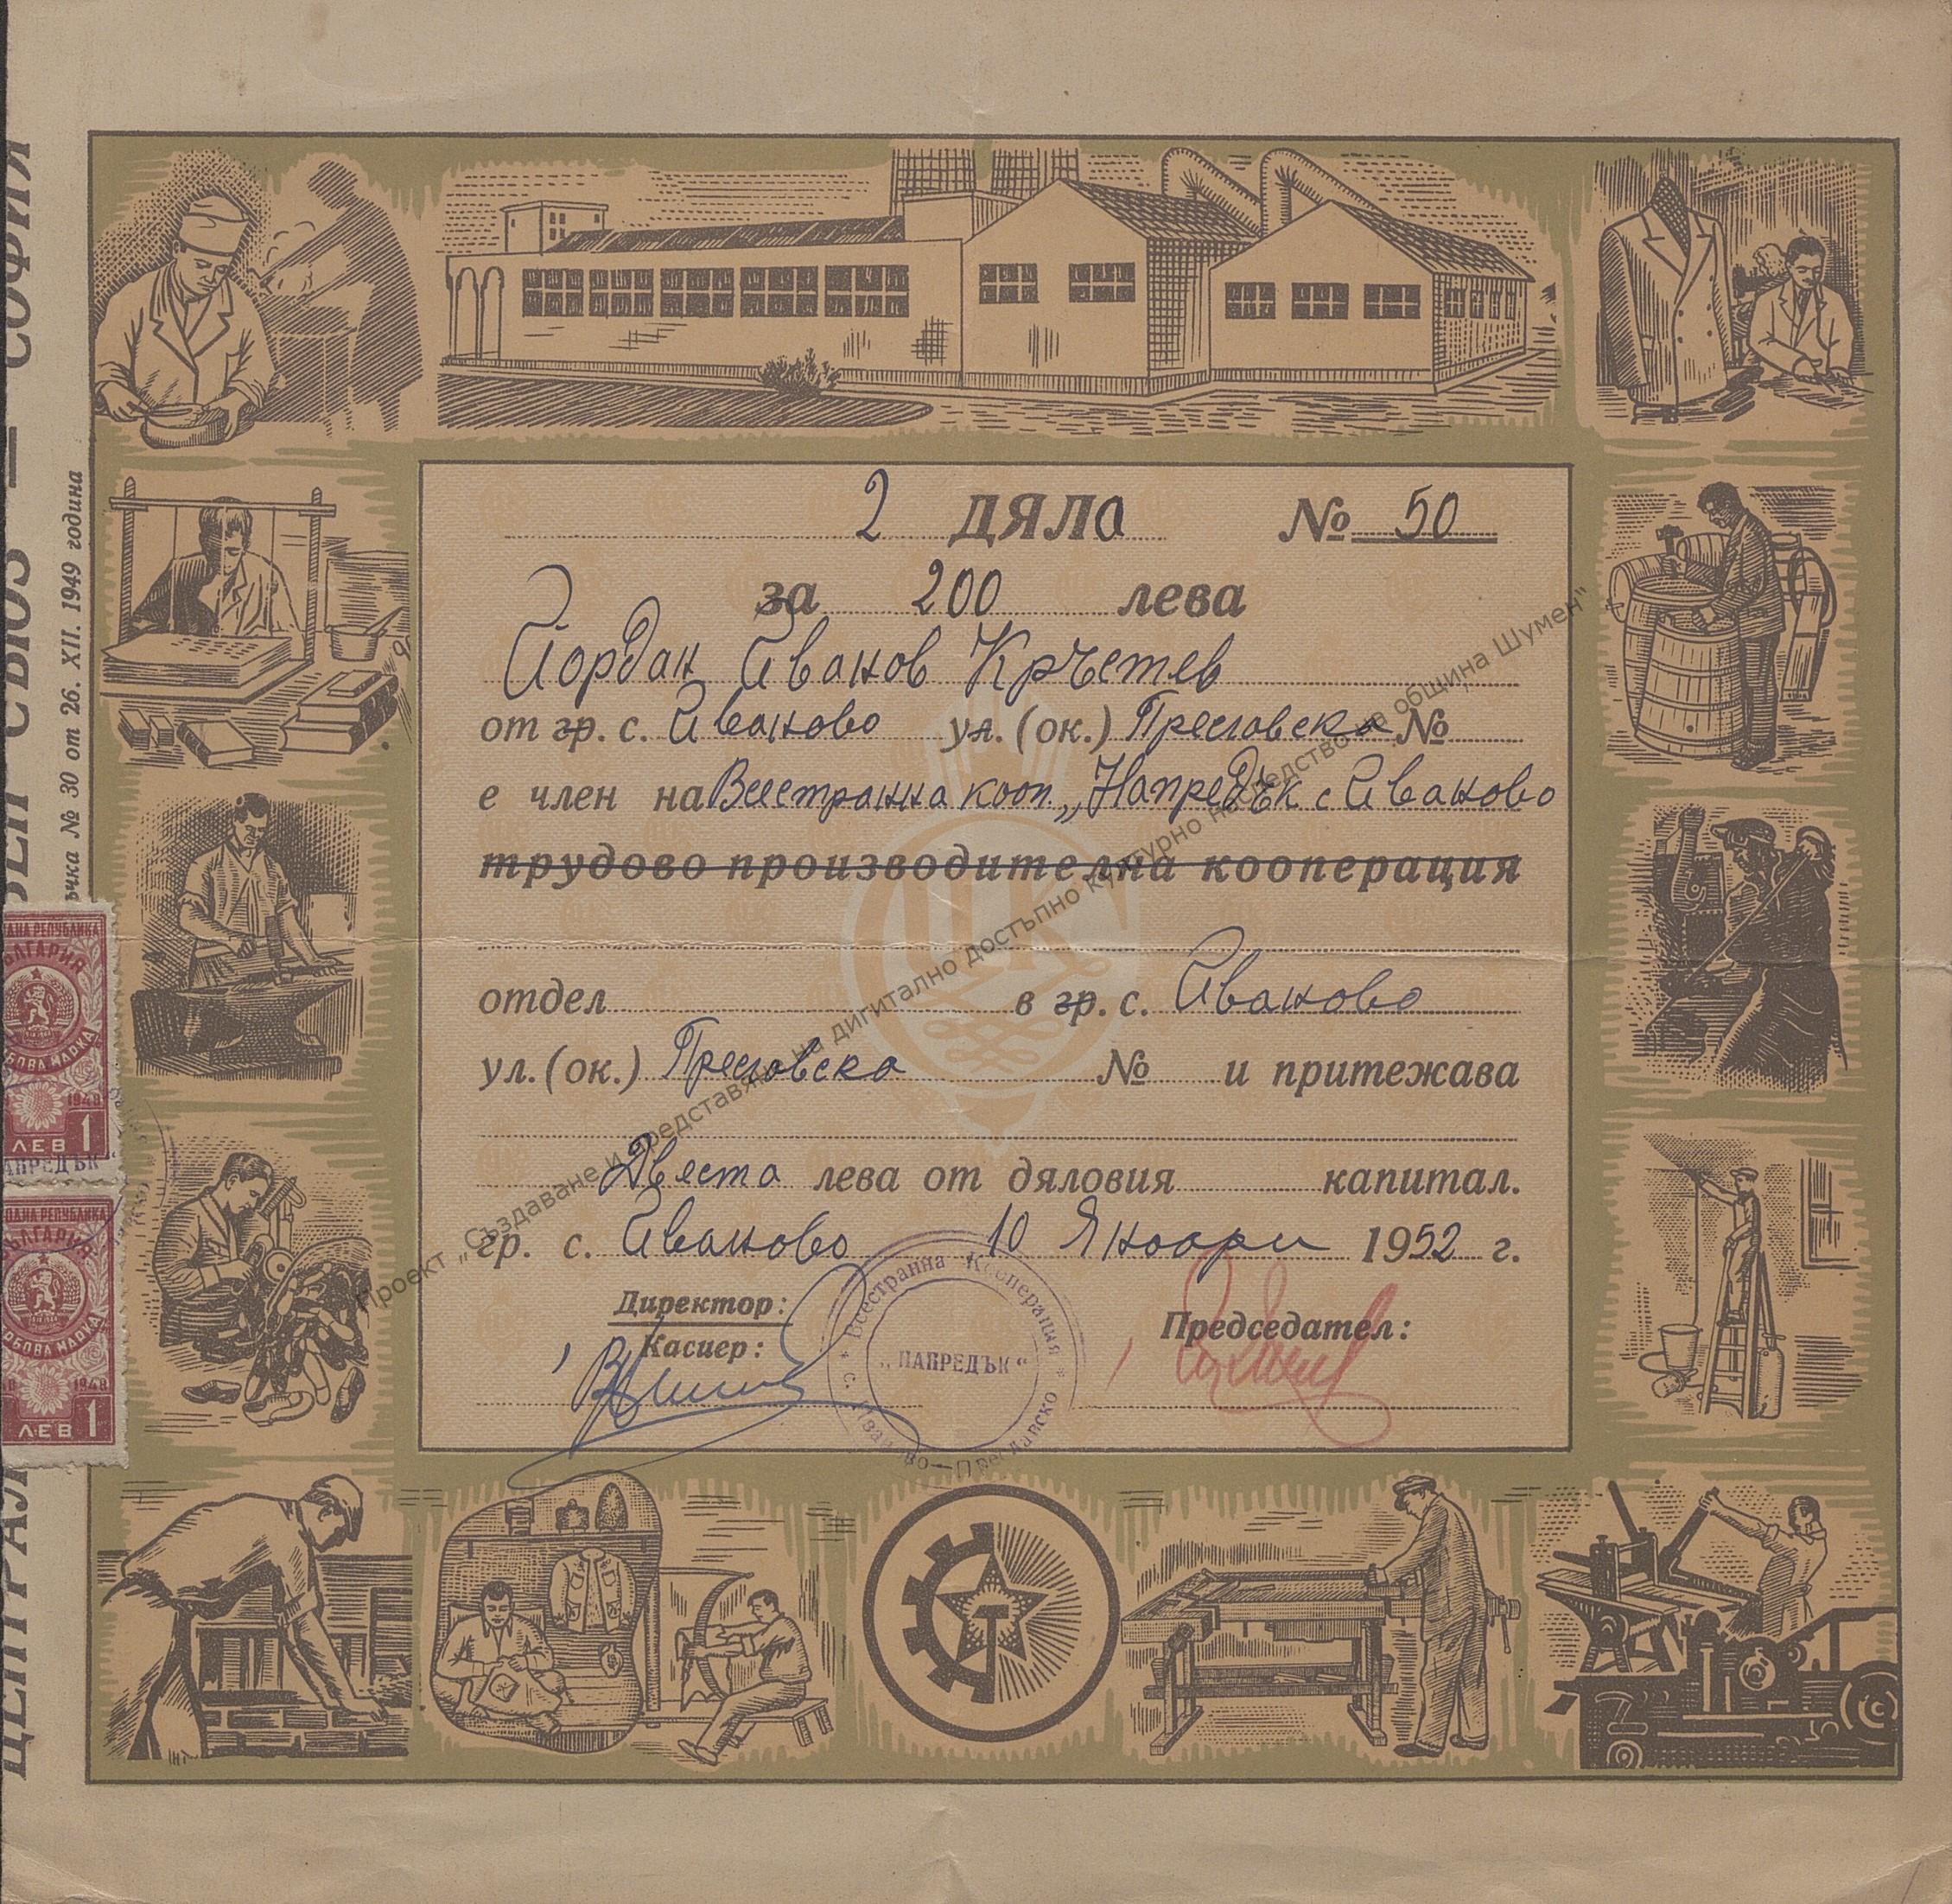 2 ДЯЛа № 50
за 200 лева
Йордан Иванов Кръстев
от гр. с. Иваново ул. (ок.) Преславска №
е член на Всестранна кооп. „Напредък с Иваново
трудово производителна кооперация
отдел в гр. с. Иваново
ул. (ок.) Преславска № и притежава
Двеста лева от дяловия капитал.
гр. с. Иваново 10 Януари 1952 г.
Директор:
Касиер:
Председател:
Всестранна Кооперация
„НАПРЕДЪК“
с. Иваново—Преславско
СЪЮЗ — СОФИЯ
№ 30 от 26. XII. 1949 година
БЪЛГАРИЯ
1948
ЛЕВ 1
НАПРЕДЪК
БЪЛГАРИЯ
1948
ЛЕВ 1
Проект „Създаване и представяне на дигитално достъпно културно наследство на община Шумен“